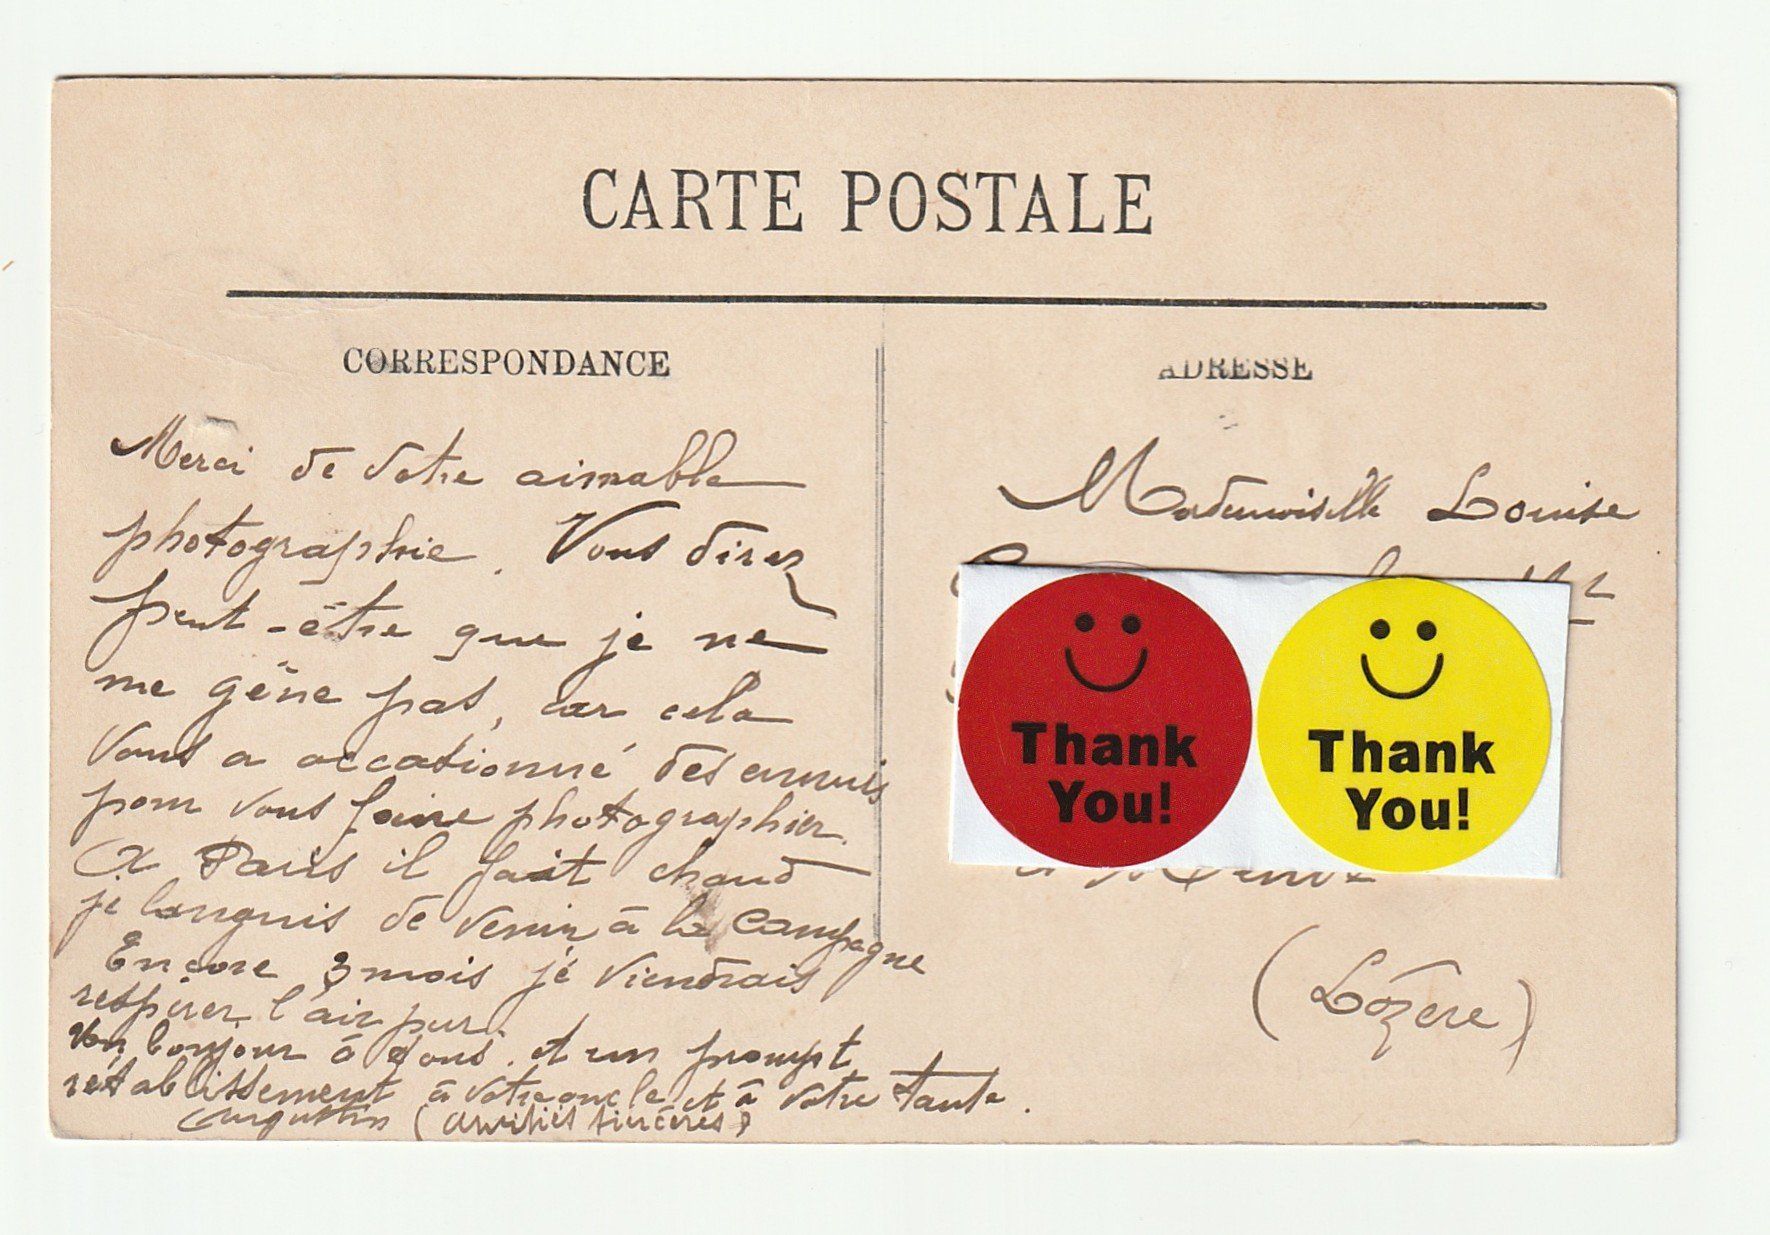 CARTE POSTALE
CORRESPONDANCE
Merci de votre aimable
photographie. Vous direz
peut-être que je ne
me gêne pas, car cela
vous a occasionné des ennuis
pour vous faire photographier.
A Paris il fait chaud
je languis de venir à la campagne
Encore 3 mois je viendrais
respirer l'air pur.
Un bonjour à tous. et un prompt
rétablissement à votre oncle et à votre tante.
Augustin (amitiés sincères)
ADRESSE
Mademoiselle Louise
Thank
You!
Thank
You!
(Lozère)